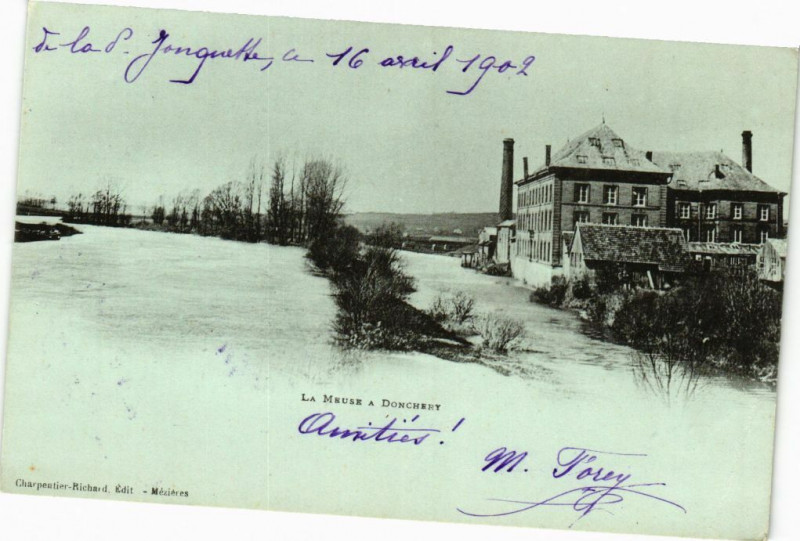 de la P. Jonquette, ce 16 avril 1902
LA MEUSE A DONCHERY
Amitiés!
M. Forey
Charpentier-Richard, Édit - Mézières